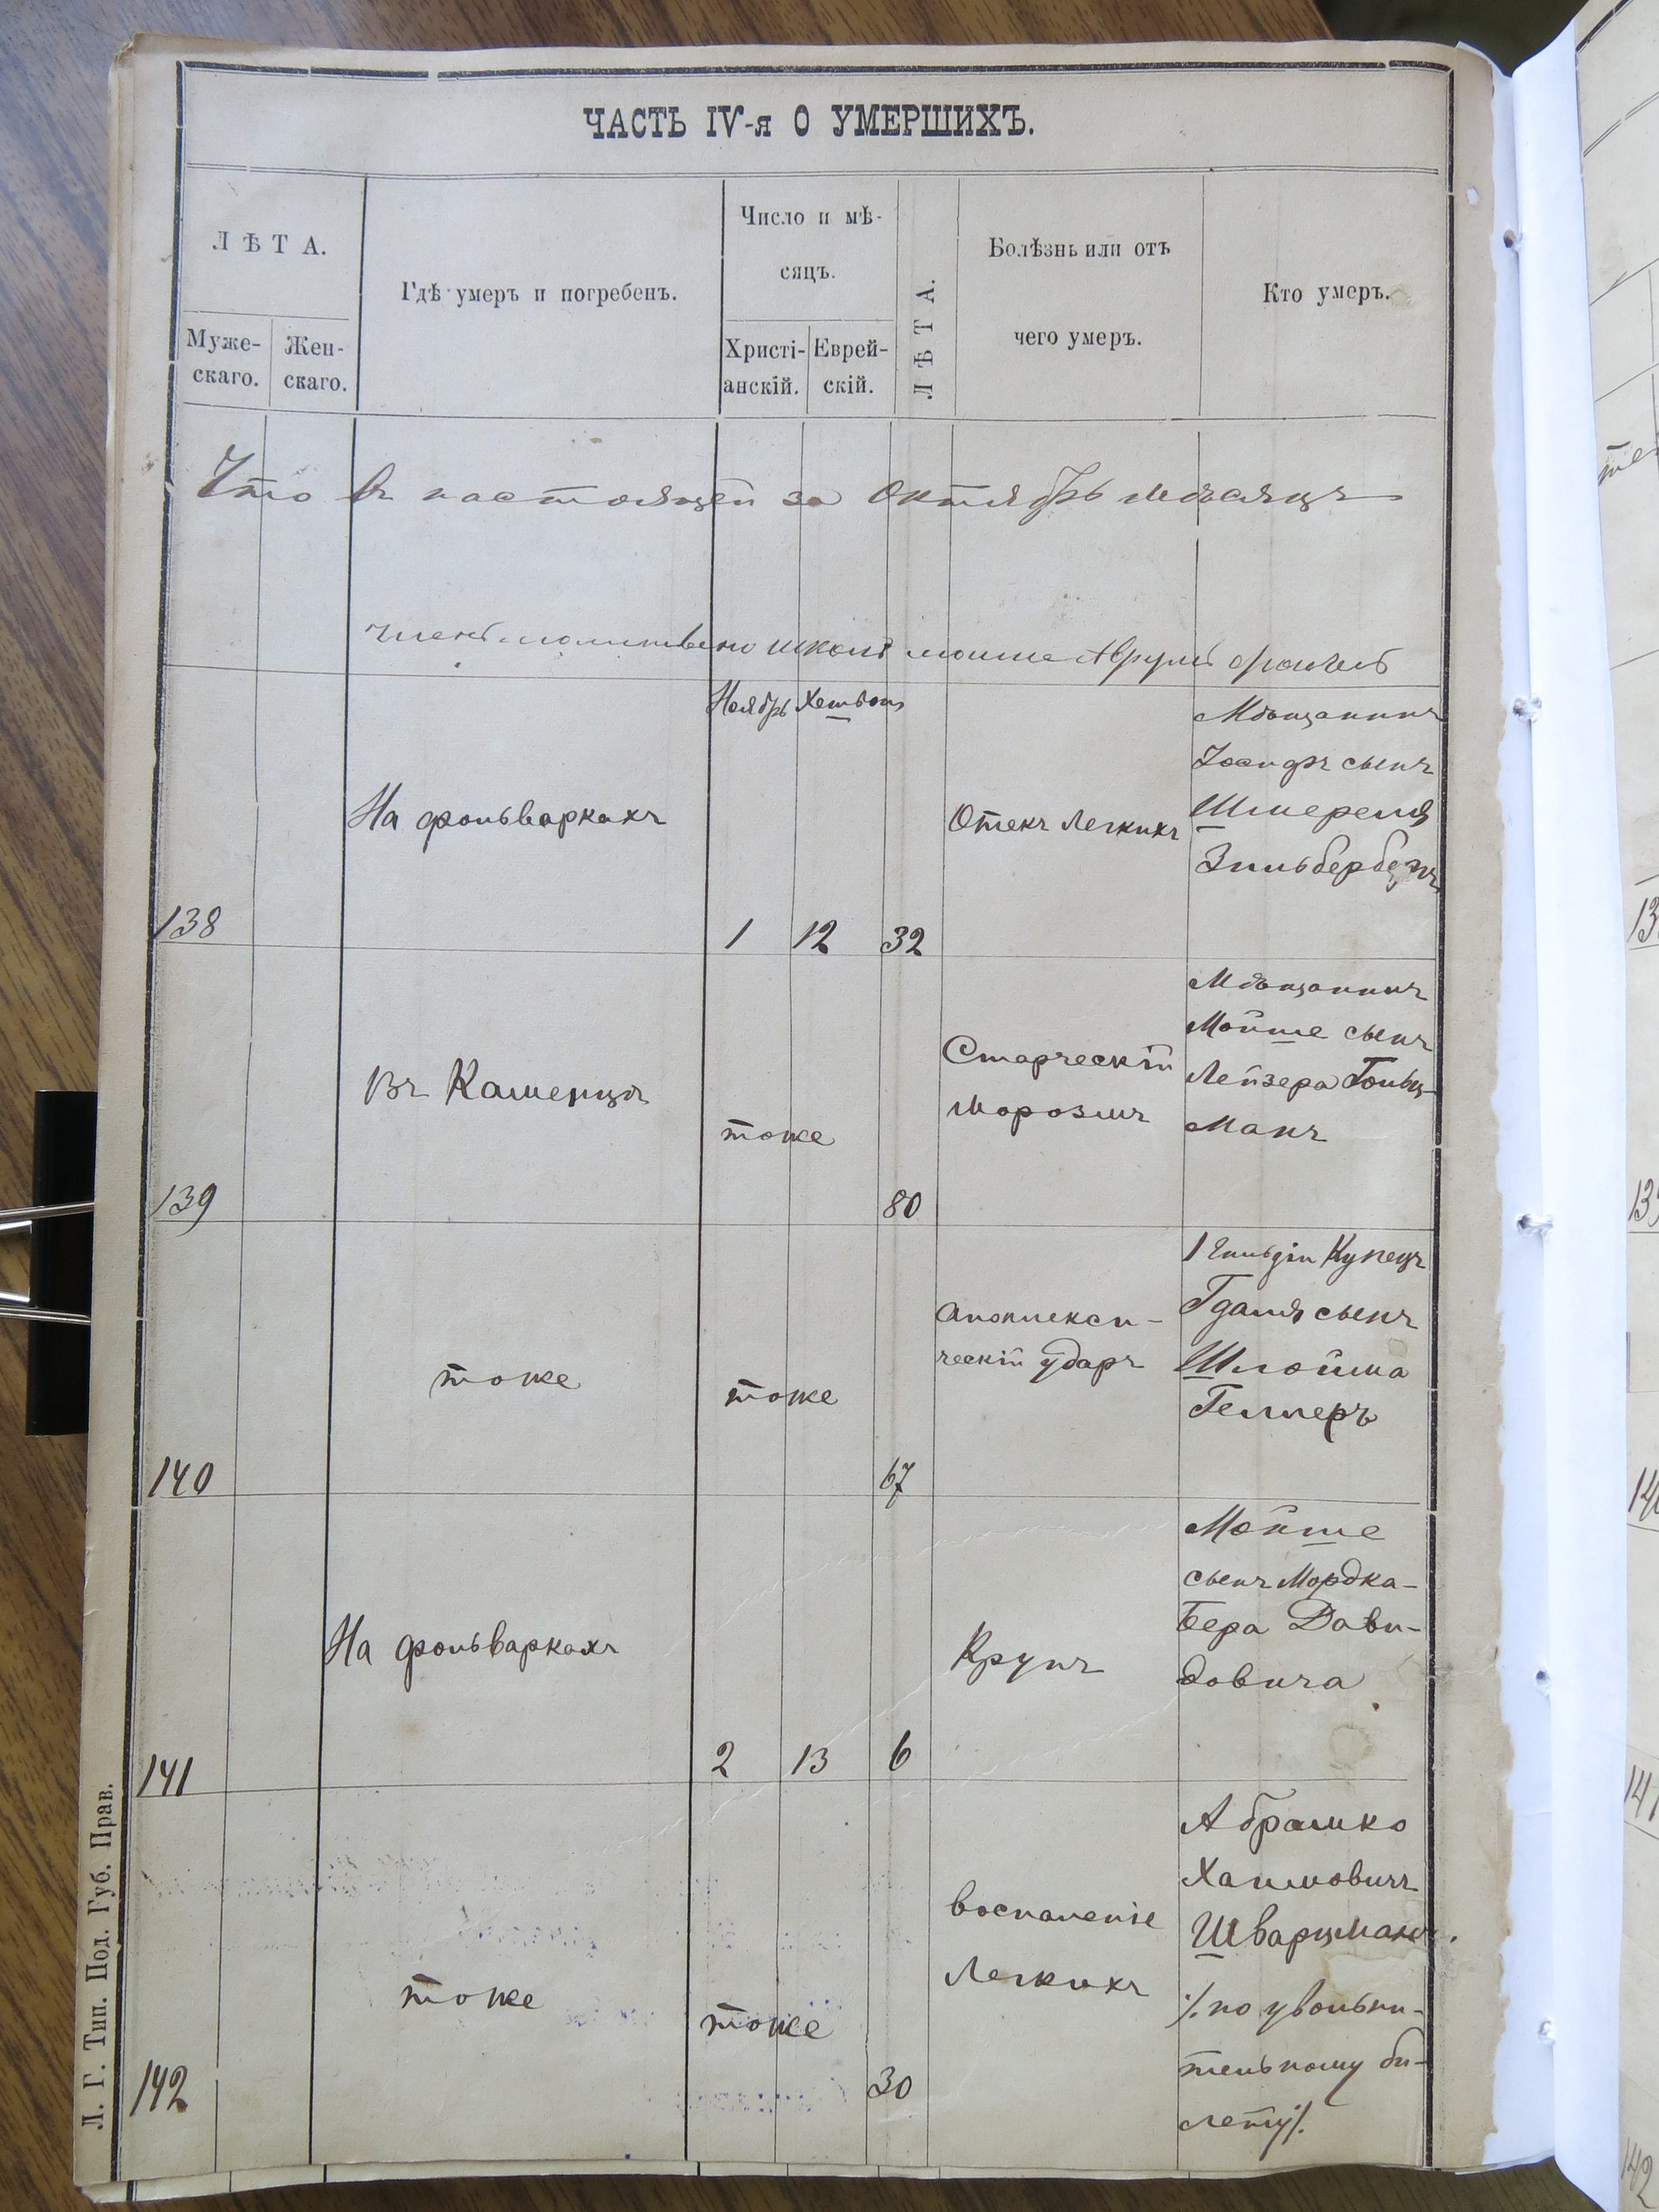 ЧАСТЬ IV-я О УМЕРШИХЪ.
ЛѢТА.
Муже-
скаго.
Жен-
скаго.
Гдѣ умеръ и погребенъ.
Число и мѣ-
сяцъ.
Христі-
анскій.
Еврей-
скій.
ЛѢТА.
Болѣзнь или отъ
чего умеръ.
Кто умеръ.
Что въ настоящей за Октябрь мѣсяцъ
членъ школы
Ноябрь Хешвон
138
На фольваркахъ
1 12 32
Отекъ Легкихъ
Мѣщанинъ
Іосифъ сынъ
Шмереля
Зильбербергъ
139
Въ Каменцѣ
тоже
80
Старческій
Морозмъ
Мѣщанинъ
Мойше сынъ
Лейзера Гольц-
Манъ
140
тоже
тоже
67
Апоплекси-
ческій ударъ
1 Гильдіи Купецъ
Гдаля сынъ
Шлойма
Геллеръ
141
На фольваркахъ
2 13 6
Крупъ
Мойше
сынъ Мордка-
Бера Дави-
довича
142
тоже
тоже
30
Воспаленіе
Легкихъ
Абрамко
Хаимовичъ
Шварцманъ.
/.по увольни-
тельному би-
лету/.
Л. Г. Тип. Под. Губ. Прав.